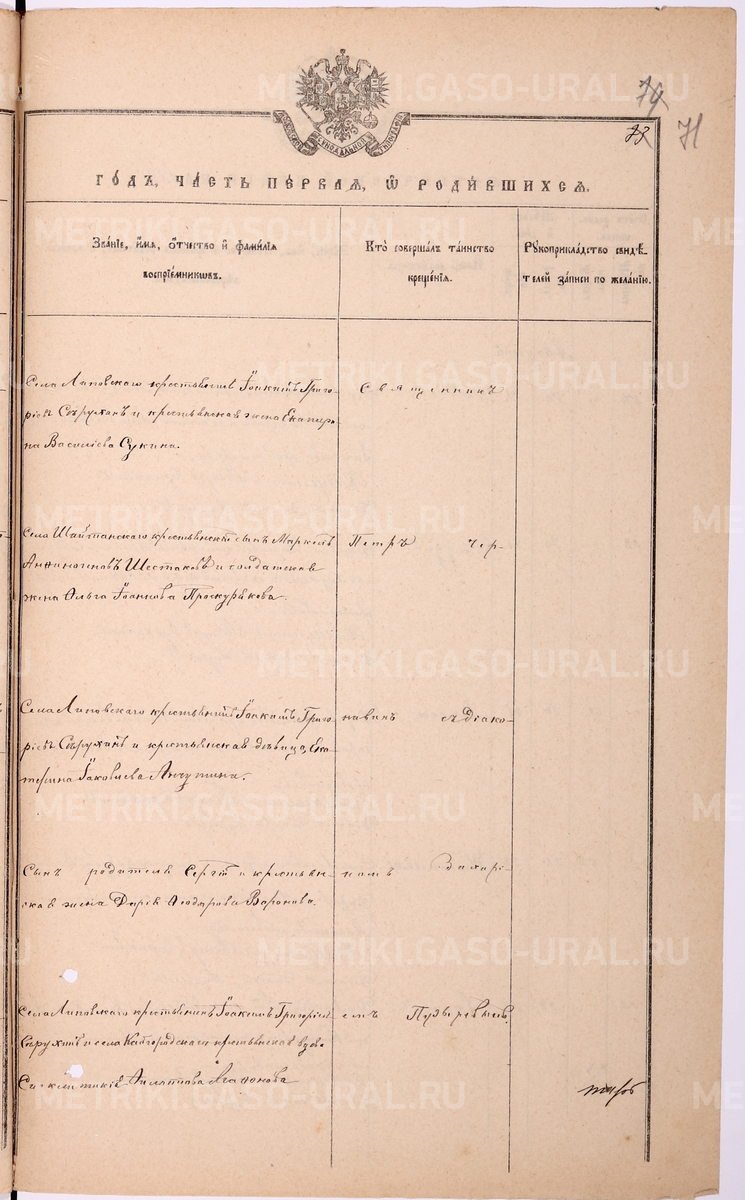 74
73
71
СѴНОДАЛЬНОЙ
ГО́ДЪ, ЧА́СТЬ ПЕ́РВАЯ, Ѡ҆ РОДИ́ВШИХСЯ.
Зва́нїе, и҆́мя, ѻ҆́тчество и҆ фами́лїя
воспрїе́мникѡвъ.
Кто̀ соверша́лъ та́инство
креще́нїя.
Рꙋкоприкла́дство свидѣ́-
телей за́писи по жела́нїю.
Села Липовскаго крестьянинъ Іоакимъ Григо-
рьевъ и крестьянская жена Екатери-
на Василіева Сукина.
Священникъ
Села Шайтанскаго крестьянскій сынъ Маркелъ
Анѳиногеновъ Шестаковъ и солдатская
жена Ольга Іоаннова Проскурякова.
Петръ Чер-
Села Липовскаго крестьянинъ Іоакимъ Григо-
рьевъ и крестьянская дѣвица Ека-
терина Іаковлева Анчутина.
навинъ съ Діако-
Сынъ родителя Сергій и крестьян-
ская жена Дарія Ѳеодорова Воронова.
номъ Захарі-
Села Липовскаго крестьянинъ Іоакимъ Григорьевъ
и села крестьянская вдова
Синклитикія Филиппова Агафонова
емъ Пузыревымъ.
METRIKI.GASO-URAL.RU